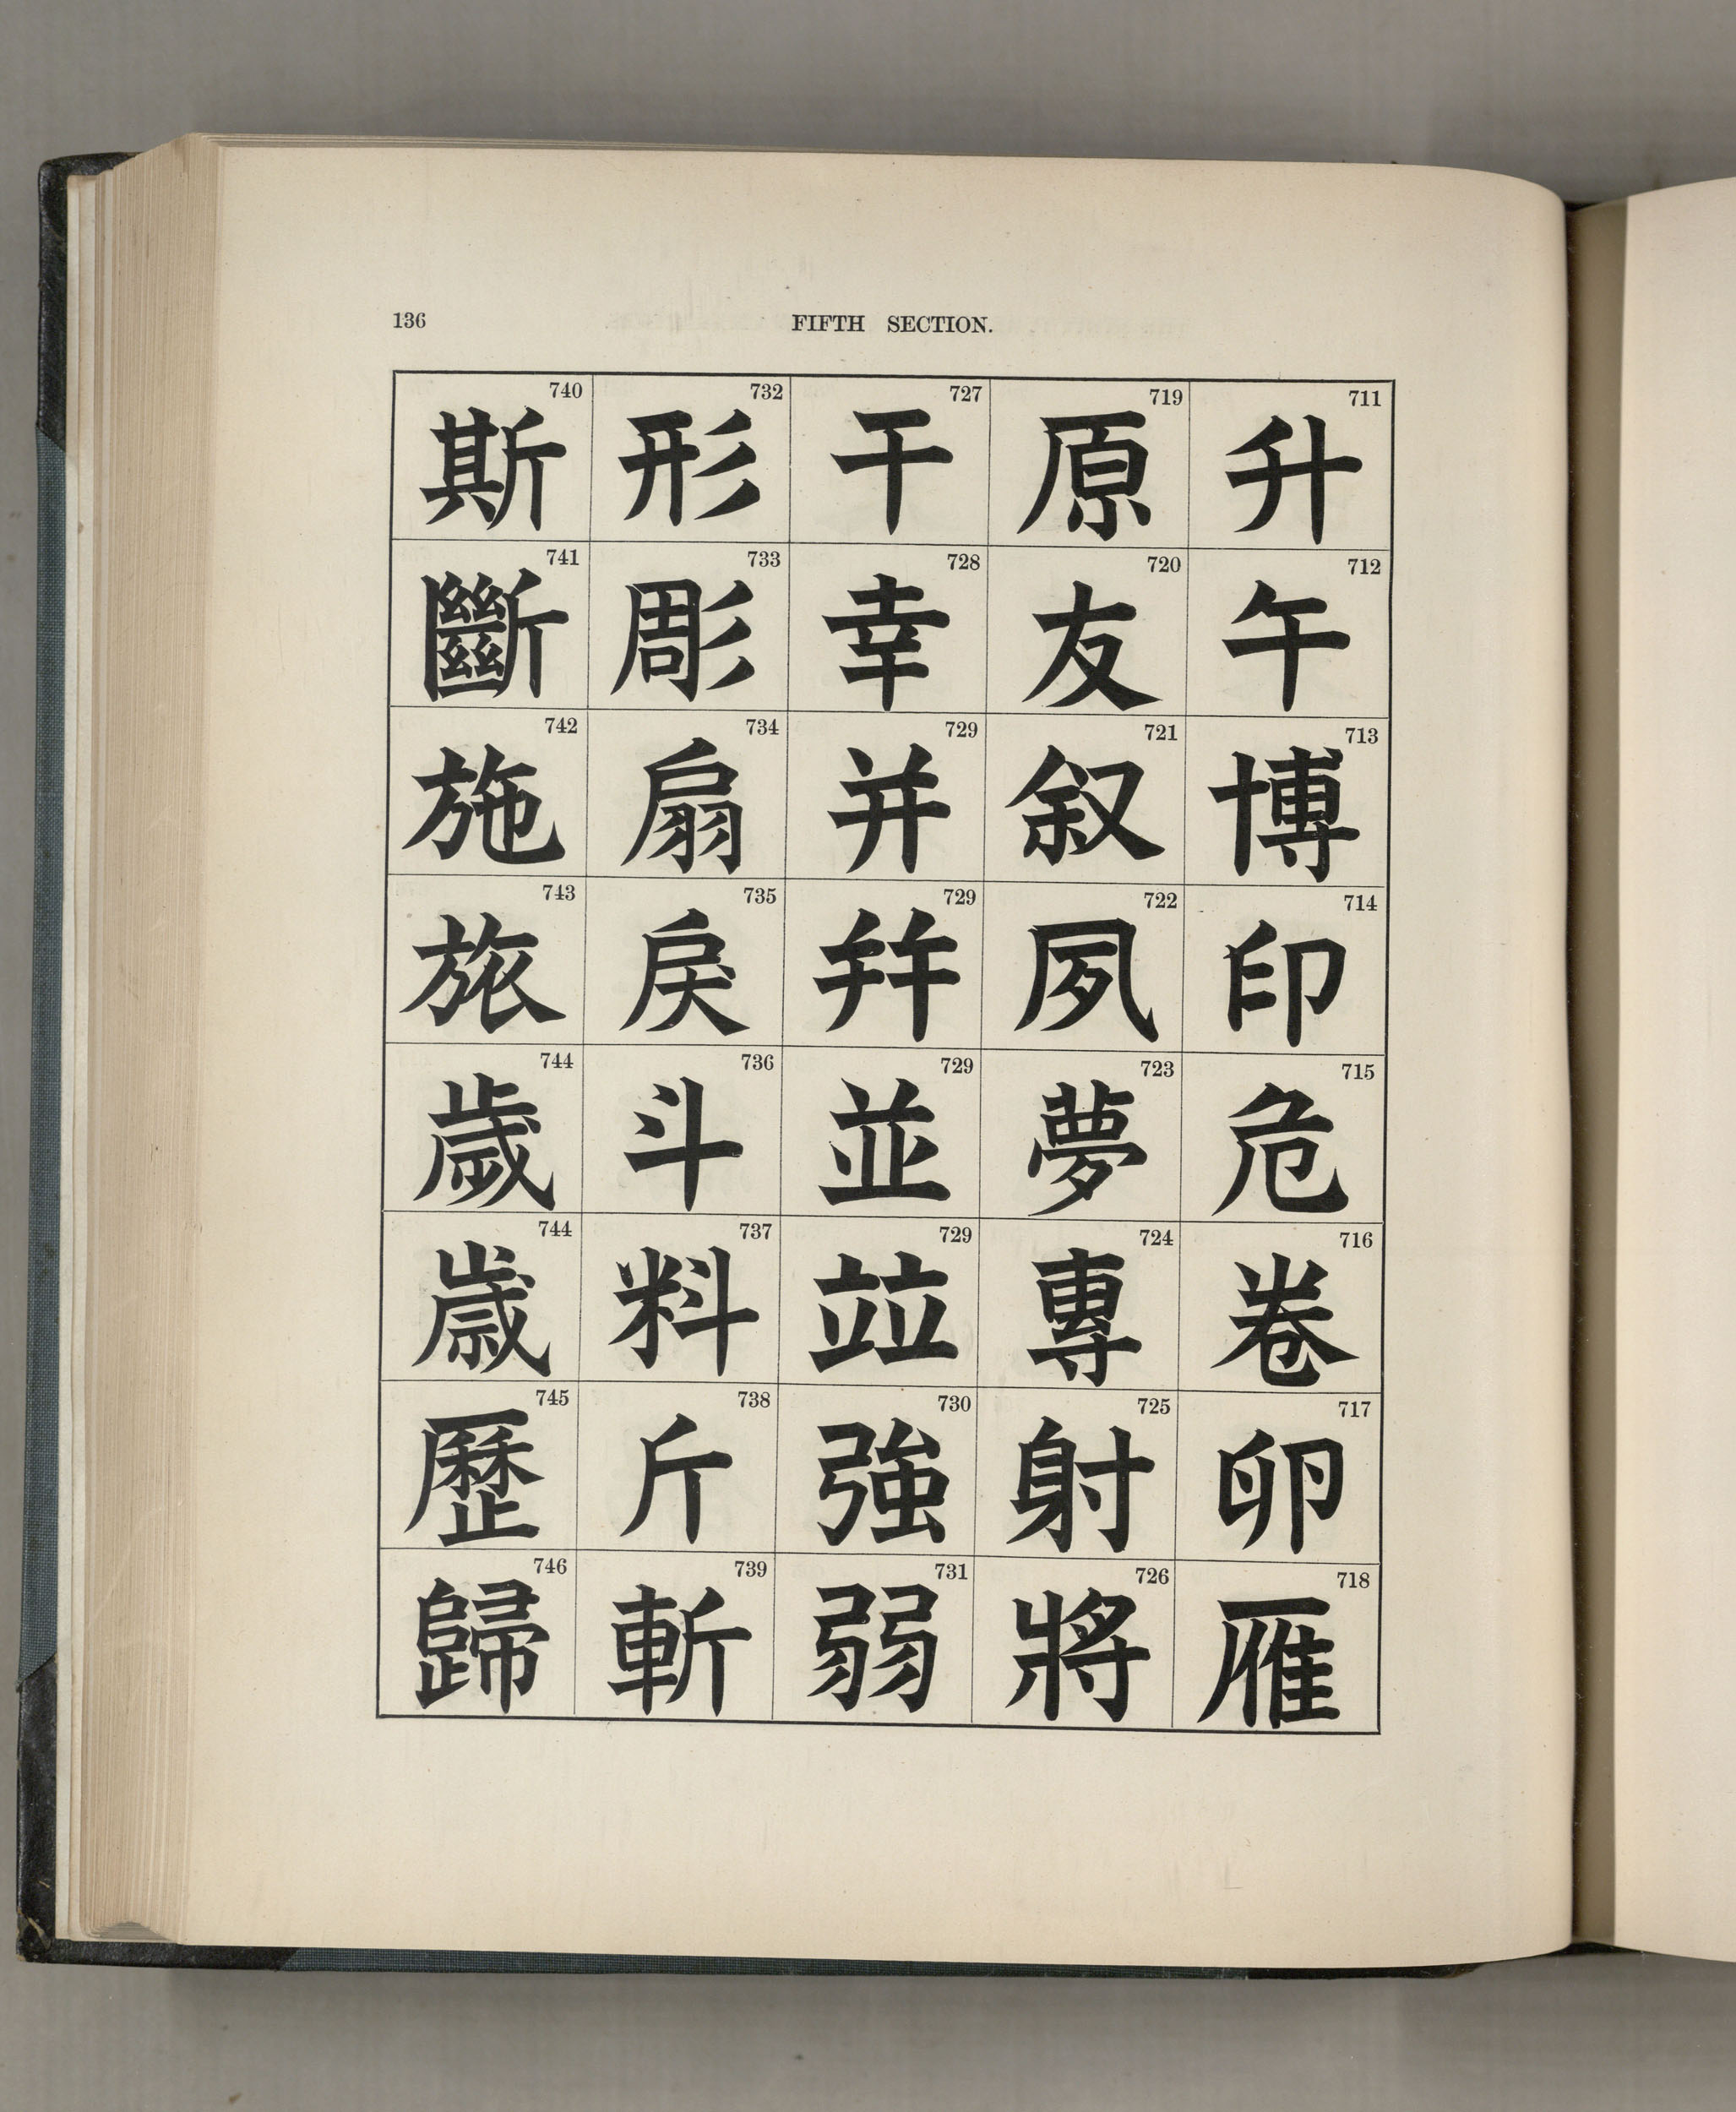 136
FIFTH SECTION.
711 升
712 午
713 博
714 印
715 危
716 卷
717 卵
718 雁
719 原
720 友
721 叙
722 夙
723 夢
724 專
725 射
726 將
727 干
728 幸
729 并
729 幷
729 並
729 竝
730 強
731 弱
732 形
733 彫
734 扇
735 戾
736 斗
737 料
738 斤
739 斬
740 斯
741 斷
742 施
743 旅
744 歲
744 歳
745 歷
746 歸